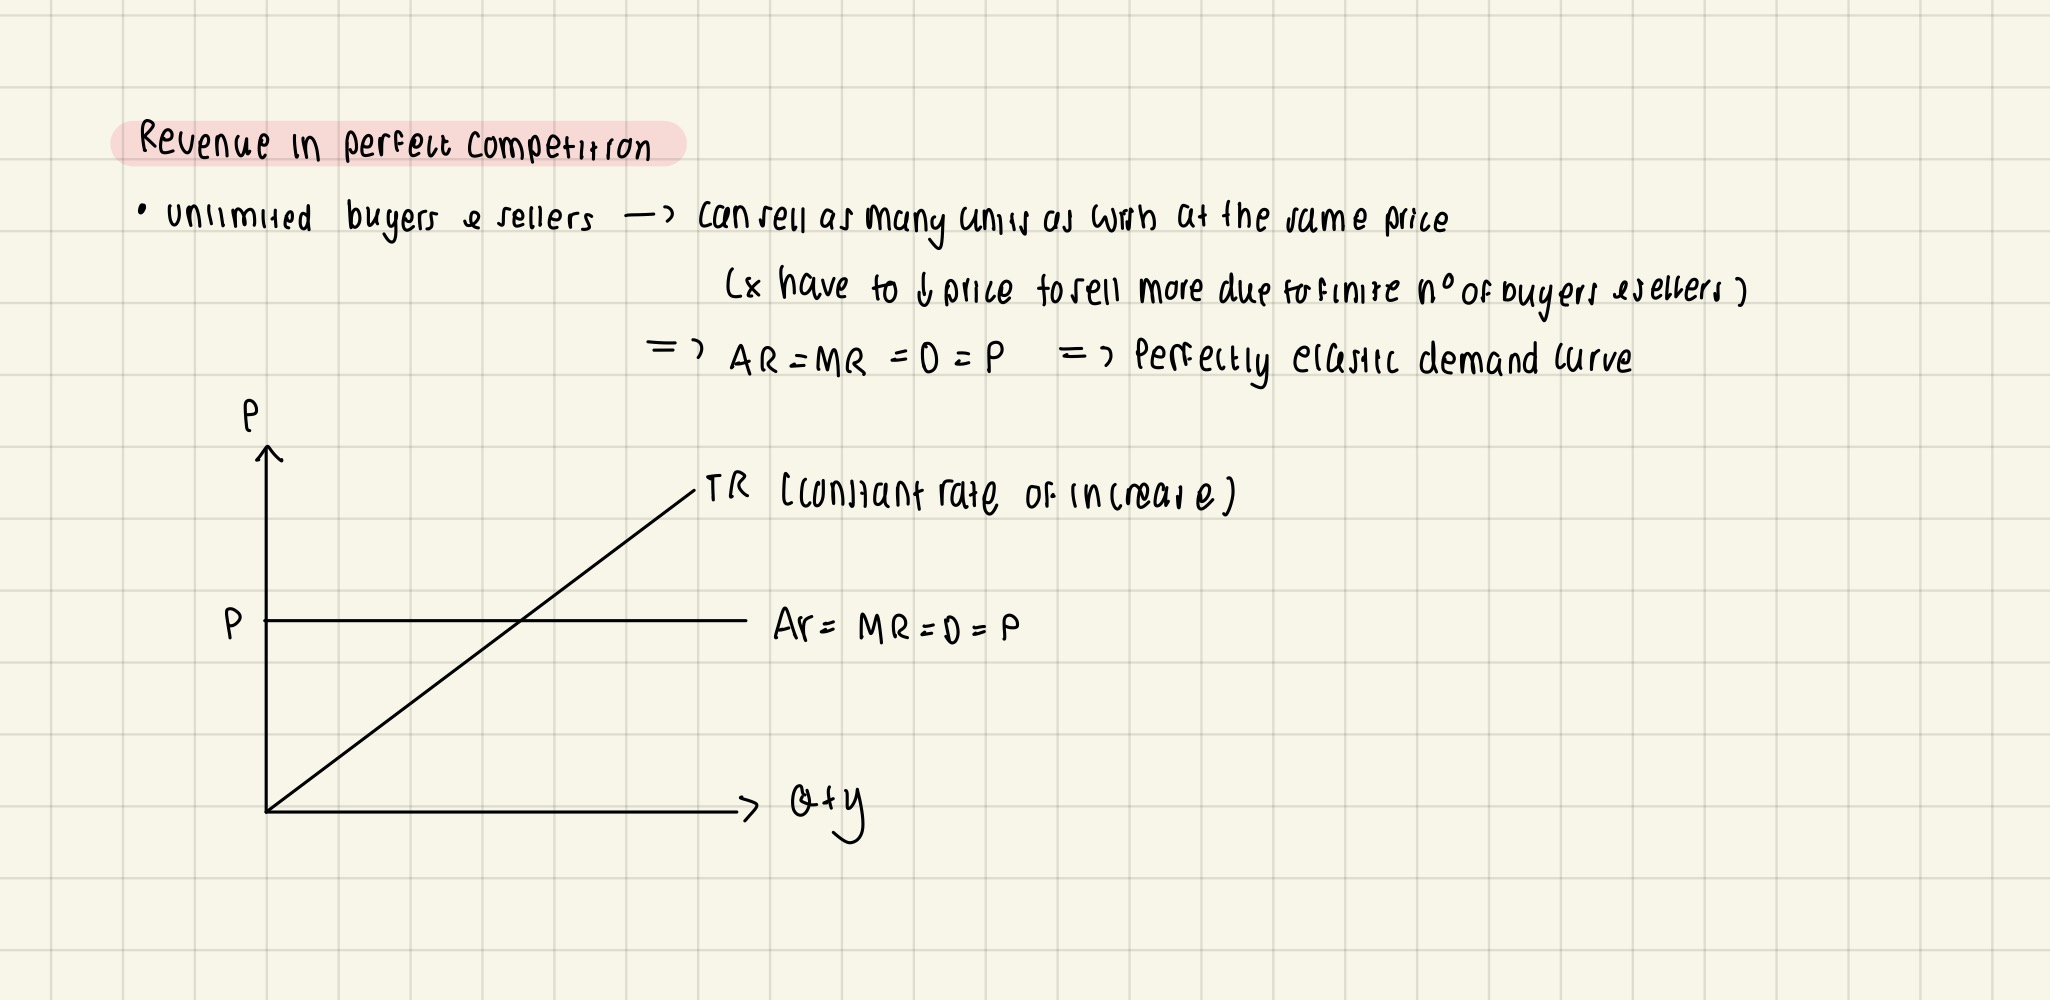 Revenue in perfect competition
• unlimited buyers & sellers —> can sell as many units as wish at the same price
(x have to ↓ price to sell more due to finite nº of buyers & sellers)
=> AR = MR = D = P => Perfectly elastic demand curve
P
TR (constant rate of increase)
P
Ar = MR = D = P
Qty